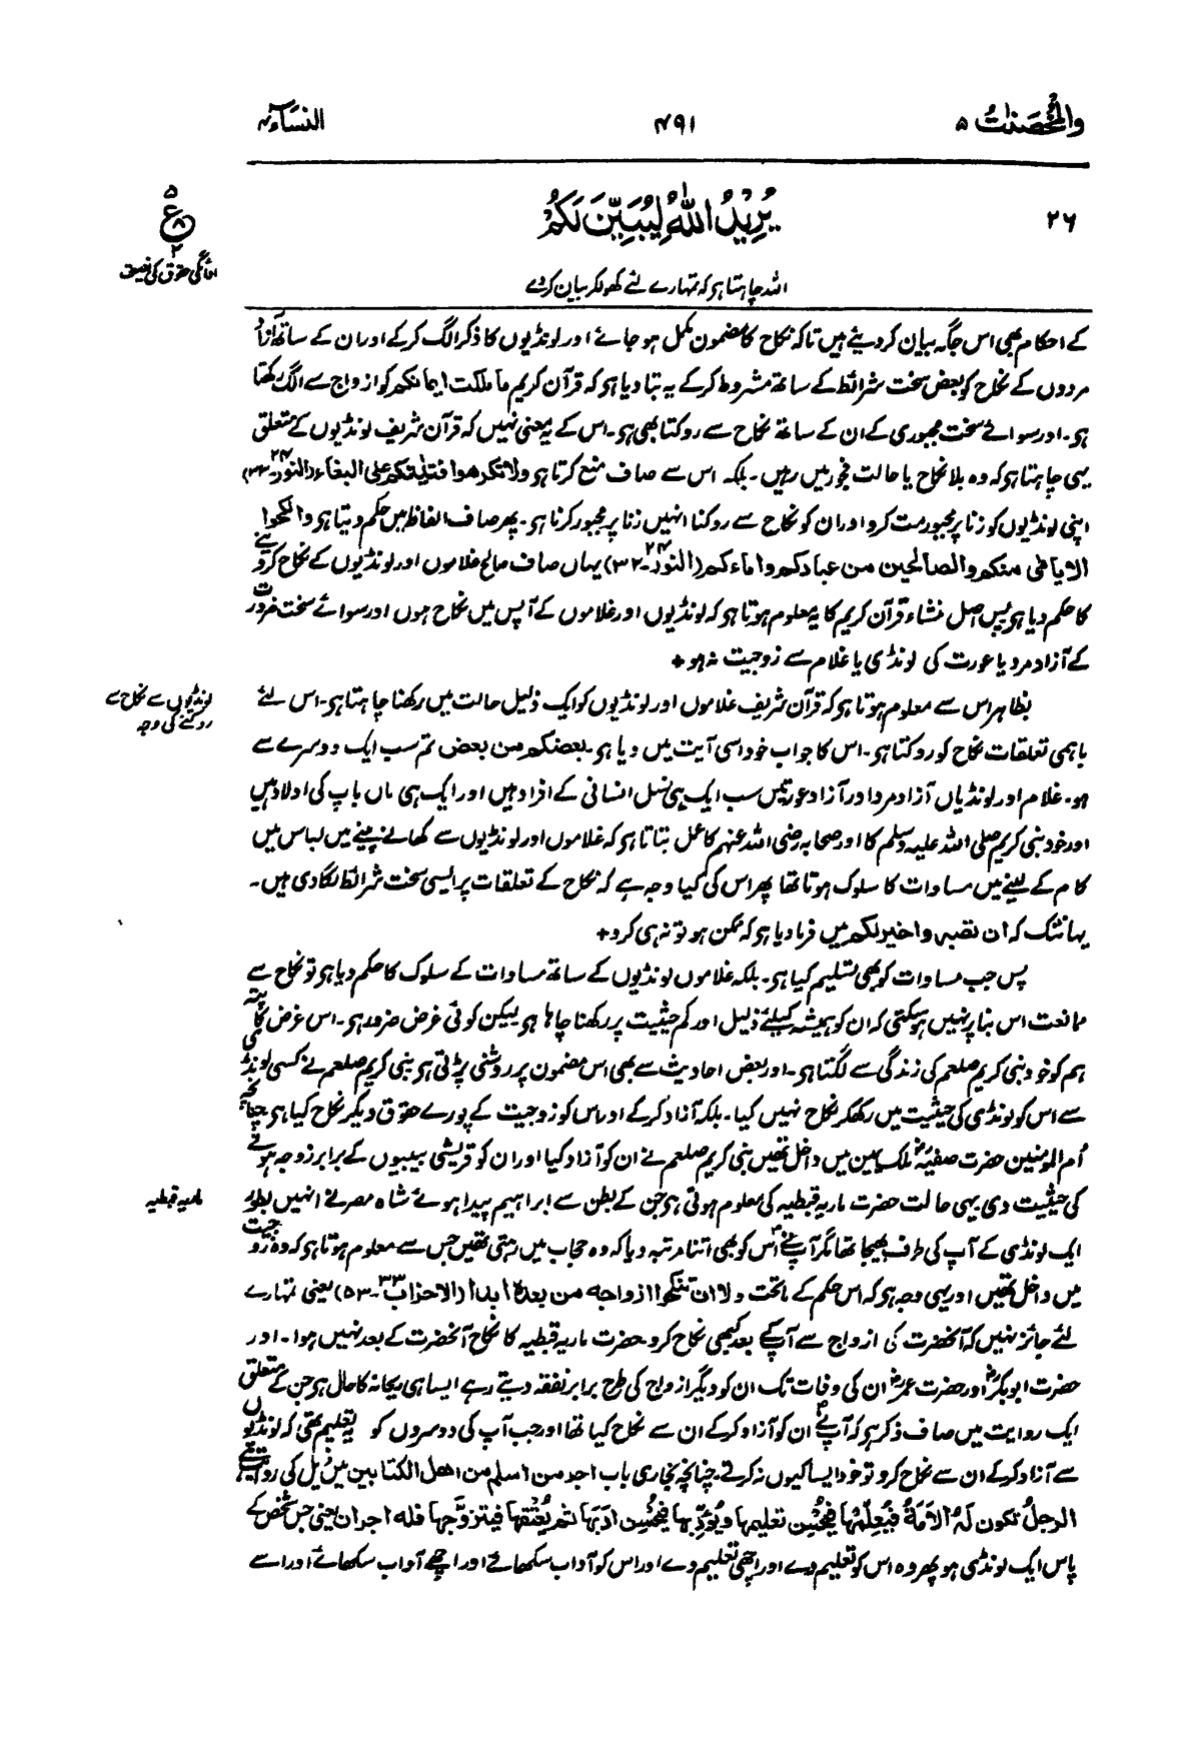 والمحصنٰت ۵
۴۹۱
النسآء ۴
۲۶
یُرِیْدُ اللّٰهُ لِیُبَیِّنَ لَکُمْ
۵
ع
۸
۲
خانگی حقوق کی نصیحت
اللہ چاہتا ہو کہ تمہارے لئے کھولکر بیان کردے
کے احکام بھی اس جگہ بیان کردیئے ہیں تاکہ نکاح کا مضمون مکمل ہو جائے اور لونڈیوں کا ذکر الگ کرکے اور ان کے ساتھ آزاد
مردوں کے نکاح کو بعض سخت شرائط کے ساتھ مشروط کرکے یہ بتا دیا ہو کہ قرآن کریم ما ملکت ایمانکم کو ازواج سے الگ رکھتا
ہو۔ اور سوائے سخت مجبوری کے ان کے ساتھ نکاح سے روکتا بھی ہو۔ اس کے یہ معنی نہیں کہ قرآن شریف لونڈیوں کے متعلق
یہی چاہتا ہو کہ وہ بلا نکاح یا حالت فجور میں رہیں۔ بلکہ اس سے صاف منع کرتا ہو ولا تکرھوا فتیٰتکم علی البغاء (النور ۲۴-۳۳)
اپنی لونڈیوں کو زنا پر مجبور مت کرو اور ان کو نکاح سے روکنا انہیں زنا پر مجبور کرنا ہو۔ پھر صاف الفاظ میں حکم دیتا ہو وانکحوا
الایامٰی منکم والصالحین من عبادکم واماءکم (النور ۲۴-۳۲) یہاں صاف صالح غلاموں اور لونڈیوں کے نکاح کردینے
کا حکم دیا ہو پس اصل منشاء قرآن کریم کا یہ معلوم ہوتا ہو کہ لونڈیوں اور غلاموں کے آپس میں نکاح ہوں اور سوائے سخت ضرورت
کے آزاد مرد یا عورت کی لونڈی یا غلام سے زوجیت نہ ہو +
بظاہر اس سے معلوم ہوتا ہو کہ قرآن شریف غلاموں اور لونڈیوں کو ایک ذلیل حالت میں رکھنا چاہتا ہو۔ اس لئے
لونڈیوں سے نکاح سے
روکنے کی وجہ
باہمی تعلقات نکاح کو روکتا ہو۔ اس کا جواب خود اسی آیت میں دیا ہو۔ بعضکم من بعض تم سب ایک دوسرے سے
ہو۔ غلام اور لونڈیاں آزاد مرد اور آزاد عورتیں سب ایک ہی نسل انسانی کے افراد ہیں اور ایک ہی ماں باپ کی اولاد ہیں
اور خود نبی کریم صلی اللہ علیہ وسلم کا اور صحابہ رضی اللہ عنہم کا عمل بتاتا ہو کہ غلاموں اور لونڈیوں سے کھانے پینے میں لباس میں
کام کے لینے میں مساوات کا سلوک ہوتا تھا پھر اس کی کیا وجہ ہے کہ نکاح کے تعلقات پر ایسی سخت شرائط لگادی ہیں۔
یہانتک کہ ان تصبروا خیر لکم میں فرمادیا ہو کہ ممکن ہو تو نہ ہی کرو +
پس جب مساوات کو بھی تسلیم کیا ہو۔ بلکہ غلاموں لونڈیوں کے ساتھ مساوات کے سلوک کا حکم دیا ہو تو نکاح سے
ممانعت اس بنا پر نہیں ہوسکتی کہ ان کو ہمیشہ کیلئے ذلیل اور کم حیثیت پر رکھنا چاہا ہو لیکن کوئی غرض ضرور ہو۔ اس غرض کا پتہ
ہم کو خود نبی کریم صلعم کی زندگی سے لگتا ہو۔ اور بعض احادیث سے بھی اس مضمون پر روشنی پڑتی ہو نبی کریم صلعم نے کسی لونڈی
سے اس کو لونڈی کی حیثیت میں رکھکر نکاح نہیں کیا۔ بلکہ آزاد کرکے اور اس کو زوجیت کے پورے حقوق دیکر نکاح کیا ہو چنانچہ
اُم المومنین حضرت صفیہؓ ملک یمین میں داخل تھیں نبی کریم صلعم نے ان کو آزاد کیا اور ان کو قریشی بیبیوں کے برابر زوجہ ہونے
کی حیثیت دی یہی حالت حضرت ماریہ قبطیہ کی معلوم ہوتی ہو جن کے بطن سے ابراہیم پیدا ہوئے شاہ مصر نے انہیں بطور
ماریہ قبطیہ
ایک لونڈی کے آپ کی طرف بھیجا تھا مگر آپؐ نے اُس کو بھی اتنا مرتبہ دیا کہ وہ حجاب میں رہتی تھیں جس سے معلوم ہوتا ہو کہ وہ زوجیت
میں داخل تھیں اور یہی وجہ ہو کہ اس حکم کے ماتحت ولا ان تنکحوا ازواجه من بعدہ ابدا (الاحزاب ۳۳-۵۳) یعنی تمہارے
لئے جائز نہیں کہ آنحضرت کی ازواج سے آپ کے بعد کبھی نکاح کرو حضرت ماریہ قبطیہ کا نکاح آنحضرت کے بعد نہیں ہوا۔ اور
حضرت ابوبکرؓ اور حضرت عمرؓ ان کی وفات تک ان کو دیگر ازواج کی طرح برابر نفقہ دیتے رہے ایسا ہی ریحانہ کا حال ہو جن کے متعلق
ایک روایت میں صاف ذکر ہو کہ آپؐ نے ان کو آزاد کرکے ان سے نکاح کیا تھا اور جب آپ کی دوسروں کو یہ تعلیم تھی کہ لونڈیوں
سے آزاد کرکے ان سے نکاح کرو تو خود ایسا کیوں نہ کرتے چنانچہ بخاری باب اجر من اسلم من اھل الکتابین میں ذیل کی روایت ہے
الرجلُ تکون لَهُ الاَمَةُ فَیُعلِّمُها فیُحْسِن تعلیمها ویُؤَدِّبها فیُحْسِن ادَبَها ثم یُعْتِقها فیتزوَّجها فله اجران یعنی جس شخص کے
پاس ایک لونڈی ہو پھر وہ اس کو تعلیم دے اور اچھی تعلیم دے اور اس کو آداب سکھائے اور اچھے آداب سکھائے اور اسے